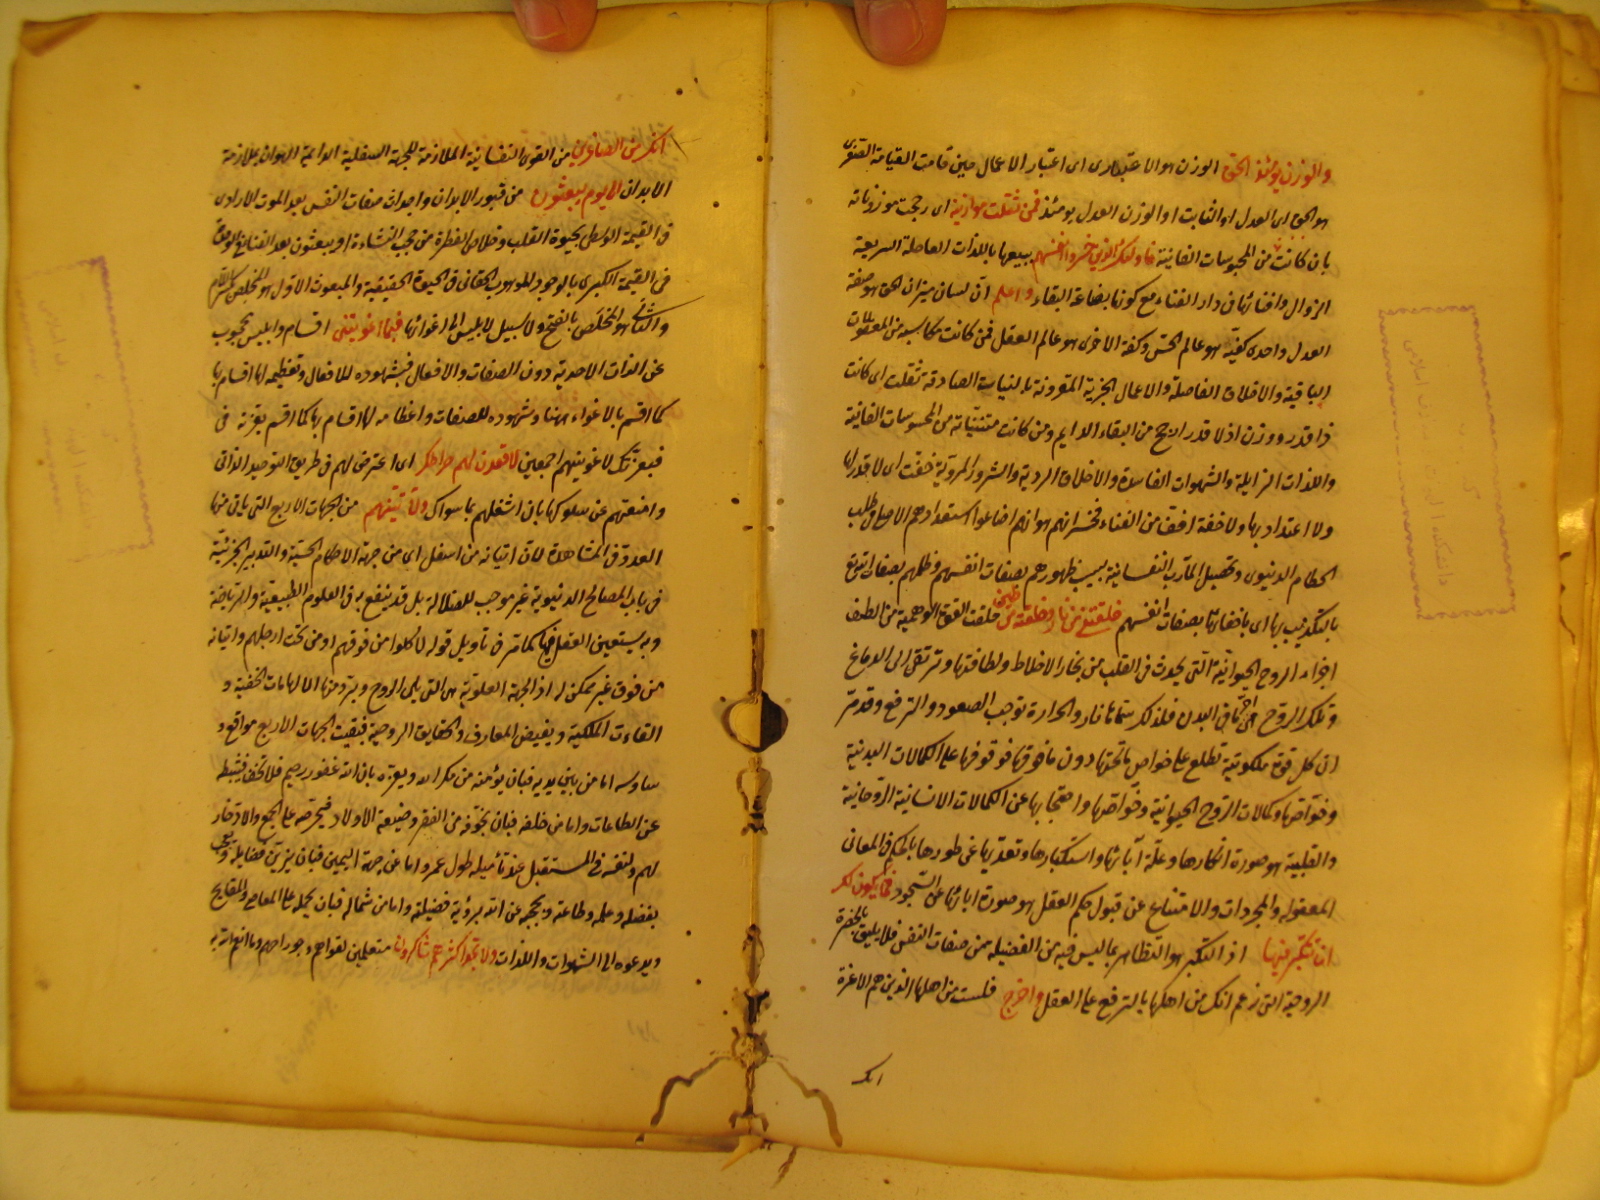 والوزن يومئذ الحق الوزن هو الاعتبار اى اعتبار الاعمال حين قامت القيامة الصغرى
هو الحق اى العدل او الثابت او الوزن العدل يومئذ فمن ثقلت موازينه اى رجحت موزوناته
بان كانت من المحبوسات الفانية فاولئك الذين خسروا انفسهم ببيعها باللذات العاجلة السريعة
الزوال وافنائها فى دار الفناء مع كونها بضاعة البقاء واعلم ان لسان ميزان الحق هو صفة
العدل واحدى كفتيه هو عالم الحس وكفة الاخرى هو عالم العقل فمن كانت مكاسبه من المعقولات
الباقية والاخلاق الفاضلة والاعمال الخيرية المقرونة بالنيات الصادقة ثقلت اى كانت
ذا قدر ووزن اذ لا قدر ارجح من البقاء الدايم ومن كانت مقتنياته من المحسوسات الفانية
واللذات الزايلة والشهوات الفاسدة والاخلاق الردية والشرور المردية خفت اى لا قدر لها
ولا اعتداد بها ولا خفة اخف من الفناء فخسرانهم هو انهم اضاعوا استعدادهم الاصلى وطلب
الحطام الدنيوى وتحصيل المآرب النفسانية بسبب ظهورهم بصفات انفسهم وظلمهم بصفات الله تع
بالتكذيب بها اى باخفائها بصفات انفسهم خلقتنى من نار وخلقته من طين خلقت القوة الوهمية من الطف
اجزاء الروح الحيوانية التى يحدث فى القلب من بخار الاخلاط ولطافتها وترتقى الى الدماغ
وتلك الروح هى احر ما فى البدن فلذلك سماها نار والحرارة توجب الصعود والترفع وقد مر
ان كل قوة ملكوتية تطلع على خواص ما تحتها دون ما فوقها فوقوفها على الكمالات البدنية
وخواصها وكمالات الروح الحيوانية وخواصها واحتجابها عن الكمالات الانسانية الروحانية
والقلبية هو صورة انكارها وعلة آبائها واستكبارها وتعديها عن طورها بالحكم فى المعانى
المعقوله والمجردات والامتناع عن قبول حكم العقل هو صورة ابائها عن السجود فما يكون لك
ان تتكبر فيها اذ التكبر هو التظاهر بما ليس فيه من الفضيلة من صفات النفس فلا يليق بالحضرة
الروحية التى زعم انك من اهلها بالترفع على العقل واخرج فلست من اهلها الذين هم الاعزة
انك
انك من الصاغرين من القوى النفسانية الملازمة للجهة السفلية الدايمة الهوان بملازمة
الابدان الى يوم يبعثون من قبور الابدان واجداث صفات النفس بعد الموت الارادى
فى القيمة الوسطى بحيوة القلب وخلاص الفطرة من حجب النشاءة او يبعثون بعد الفناء فى الوحدة
فى القيمة الكبرى بالوجود الموهوب الحقانى فى الحيوة الحقيقية والمبعوث الاول هو المخلص بكسر اللام
والثانى هو المخلص بالفتح ولا سبيل لابليس الى اغوائها فبما اغويتنى اقسام وابليس محجوب
عن الذات الاحدية دون الصفات والافعال فشهوده للافعال وتعظيمه لها اقسام بها
كما اقسم بالاغواء ههنا وشهوده للصفات واعظامه لها اقسام بها كما اقسم بعزته فى
فبعزتك لاغوينهم اجمعين لاقعدن لهم صراطك اى اعترض لهم فى طريق التوحيد الذاتى
وامنعهم عن سلوكها بان اشغلهم بما سواك ولآتينهم من الجهات الاربع التى ياتى منها
العدو فى المشاهدة لان اتيانه من اسفل اى من جهة الاحكام الحسية والتدبير الجزئية
فى باب المصالح الدنيوية غير موجب للضلالة بل قد ينتفع به فى العلوم الطبيعية والرياضية
وبه يستعين العقل فيها كما مر فى تأويل قوله لاكلوا من فوقهم ومن تحت ارجلهم واتيانه
من فوق غير ممكن له اذ الجهة العلوية هى التى يلى الروح ويرد منها الالهامات الحقية و
القاءات الملكية ويفيض المعارف والحقايق الروحية فبقيت الجهات الاربع مواقع و
ساوسه اما من بين يديه فبان يؤمنه من مكر الله ويغره بان الله غفور رحيم فلا تخف فيثبطه
عن الطاعات واما من خلفه فبان يخوفه من الفقر وضيعة الاولاد فيحرصه على الجمع والادخار
لهم ولنفسه فى المستقبل عند تأميله طول عمر واما عن جهة اليمين فبان يزين فضايله ويعجب
بفضله وعلمه وطاعته ويحجبه عن الله برؤية فضيلته واما من شماله فبان يحمله على المعاصى والمقابح
ويدعوه الى الشهوات واللذات ولا تجد اكثرهم شاكرين مستعملين لقواهم وجوارحهم وما انعم الله به